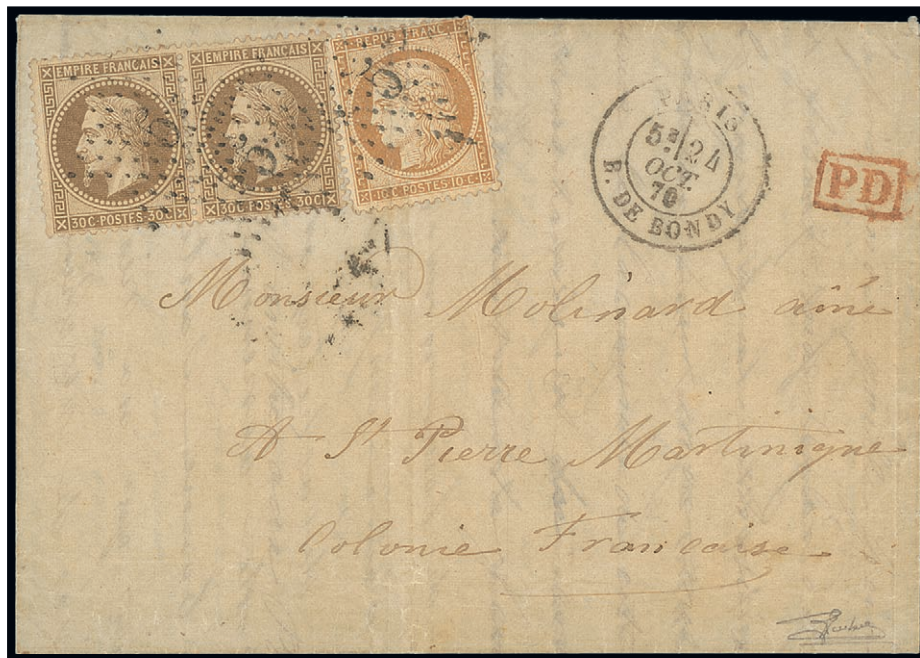 EMPIRE FRANÇAIS
30 C·POSTES·30 C
EMPIRE FRANÇAIS
30 C·POSTES 30 C
REPUB·FRANC·
10 C·POSTES 10 C·
5
5
PARIS
5ᴱ 24
OCT.
70
R. DE BONDY
PD
Monsieur Molinard ainé
A St Pierre Martinique
Colonie Française